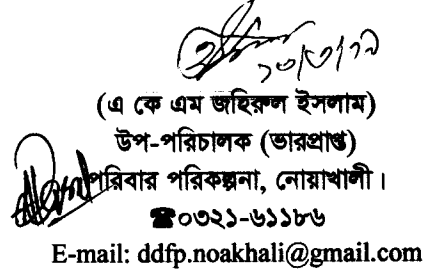 (এ কে এম জহিরুল ইসলাম)
উপ-পরিচালক (ভারপ্রাপ্ত)
পরিবার পরিকল্পনা, নোয়াখালী।
☎০৩২১-৬১১৮৬
E-mail: ddfp.noakhali@gmail.com